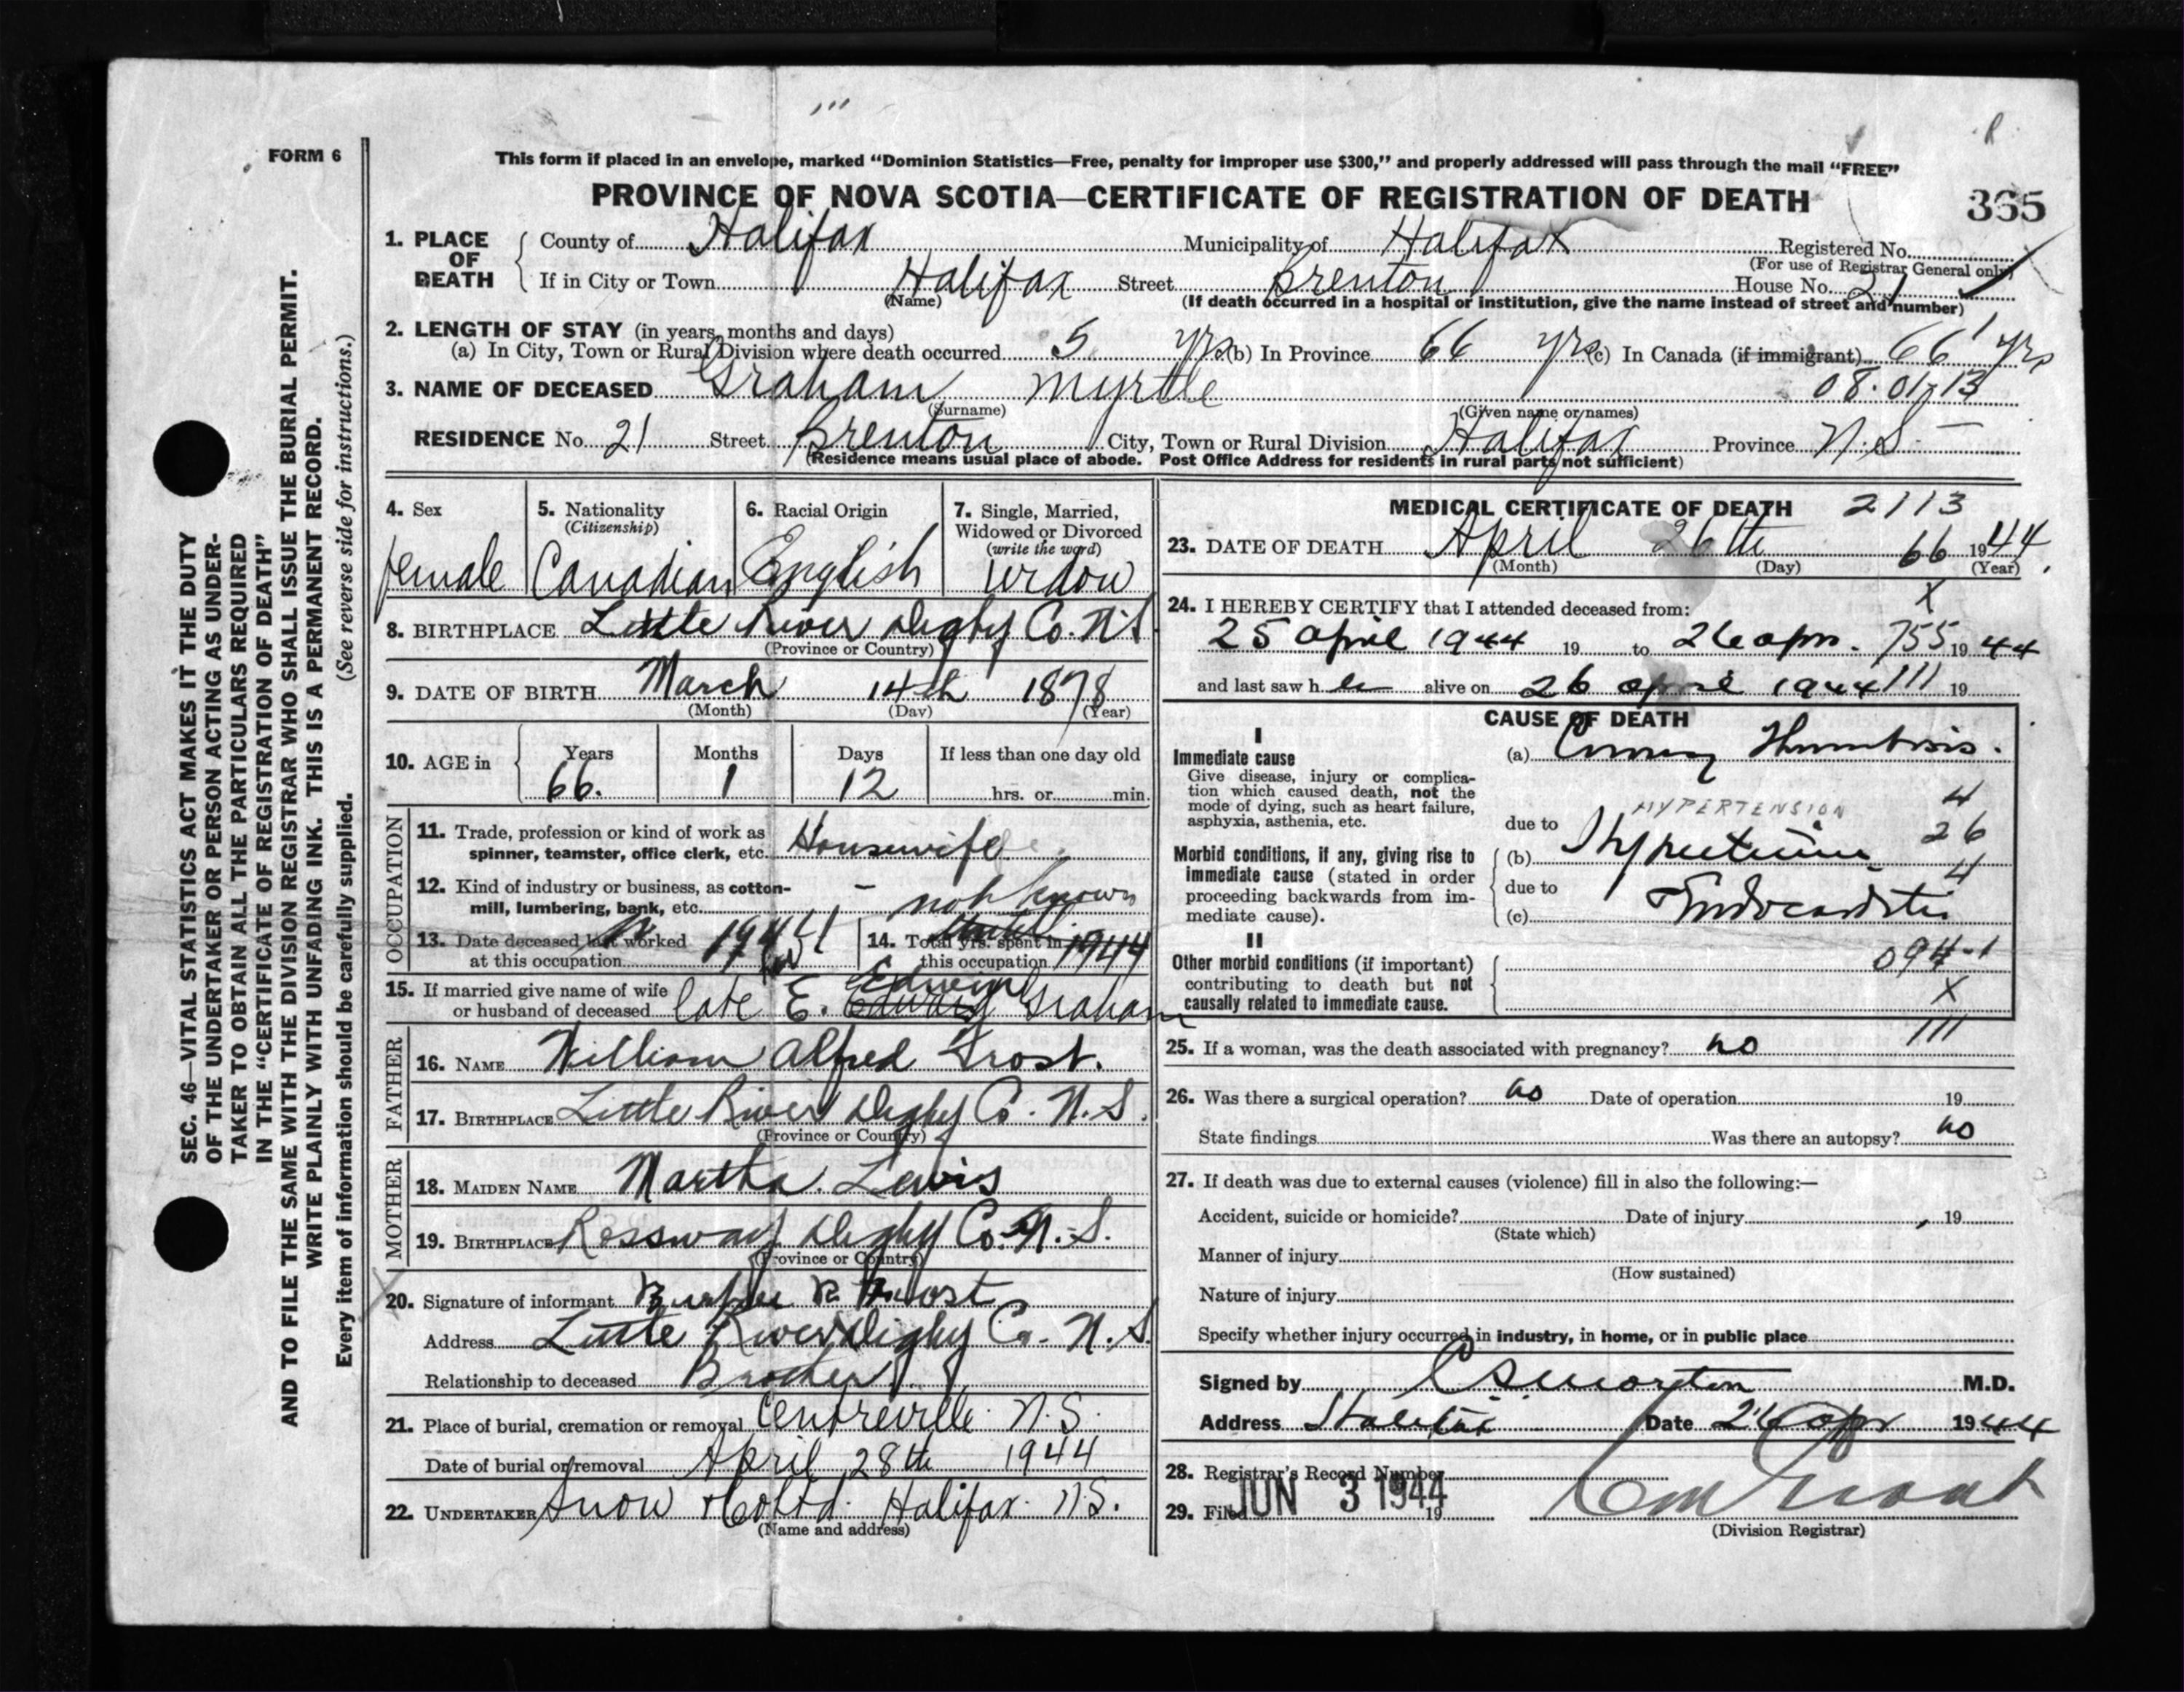 FORM 6
This form if placed in an envelope, marked “Dominion Statistics—Free, penalty for improper use $300,” and properly addressed will pass through the mail “FREE”
PROVINCE OF NOVA SCOTIA—CERTIFICATE OF REGISTRATION OF DEATH
365
1. PLACE OF DEATH
County of Halifax Municipality of Halifax Registered No.
(For use of Registrar General only)
If in City or Town Halifax Street Brenton House No. 21
(Name) (If death occurred in a hospital or institution, give the name instead of street and number)
2. LENGTH OF STAY (in years, months and days)
(a) In City, Town or Rural Division where death occurred 5 yrs (b) In Province 66 yrs (c) In Canada (if immigrant) 66 yrs
08.01.13
3. NAME OF DECEASED Graham Myrtle
(Surname) (Given name or names)
RESIDENCE No. 21 Street Brenton City, Town or Rural Division Halifax Province N.S.
(Residence means usual place of abode. Post Office Address for residents in rural parts not sufficient)
4. Sex
female
5. Nationality
(Citizenship)
Canadian
6. Racial Origin
English
7. Single, Married, Widowed or Divorced
(write the word)
Widow
8. BIRTHPLACE Little River Digby Co. N.S.
(Province or Country)
9. DATE OF BIRTH March 14th 1878
(Month) (Day) (Year)
10. AGE in
Years Months Days If less than one day old
66. 1 12 hrs. or min.
OCCUPATION
11. Trade, profession or kind of work as spinner, teamster, office clerk, etc. Housewife
12. Kind of industry or business, as cotton-mill, lumbering, bank, etc. - not known
13. Date deceased last worked at this occupation 1944
14. Total yrs. spent in this occupation 1944
15. If married give name of wife or husband of deceased late E. Edwin Graham
FATHER
16. NAME William Alfred Frost.
17. BIRTHPLACE Little River Digby Co. N.S.
(Province or Country)
MOTHER
18. MAIDEN NAME Martha Lewis
19. BIRTHPLACE Rossway Digby Co. N.S.
(Province or Country)
20. Signature of informant R Frost
Address Little River Digby Co. N.S.
Relationship to deceased Brother
21. Place of burial, cremation or removal Centreville N.S.
Date of burial or removal April 28th 1944
22. UNDERTAKER Snow & Co Ltd. Halifax N.S.
(Name and address)
MEDICAL CERTIFICATE OF DEATH 2113
23. DATE OF DEATH April 26th 66 1944
(Month) (Day) (Year)
X
24. I HEREBY CERTIFY that I attended deceased from:
25 April 1944 19 to 26 apr. 755 19 44
and last saw h er alive on 26 april 1944 111 19
CAUSE OF DEATH
I
Immediate cause
Give disease, injury or complication which caused death, not the mode of dying, such as heart failure, asphyxia, asthenia, etc.
(a) Coronary Thrombosis.
4
HYPERTENSION
26
4
Morbid conditions, if any, giving rise to immediate cause (stated in order proceeding backwards from immediate cause).
due to
(b) Hypertension
due to
(c) Endocarditis
II
Other morbid conditions (if important) contributing to death but not causally related to immediate cause.
094-1
X
111
25. If a woman, was the death associated with pregnancy? no
26. Was there a surgical operation? no Date of operation 19
State findings Was there an autopsy? no
27. If death was due to external causes (violence) fill in also the following:—
Accident, suicide or homicide? Date of injury , 19
(State which)
Manner of injury
(How sustained)
Nature of injury
Specify whether injury occurred in industry, in home, or in public place
Signed by C S Morton M.D.
Address Halifax Date 26 Apr 1944
28. Registrar's Record Number
29. Filed JUN 3 1944 19
(Division Registrar)
SEC. 46—VITAL STATISTICS ACT MAKES IT THE DUTY
OF THE UNDERTAKER OR PERSON ACTING AS UNDER-
TAKER TO OBTAIN ALL THE PARTICULARS REQUIRED
IN THE “CERTIFICATE OF REGISTRATION OF DEATH”
AND TO FILE THE SAME WITH THE DIVISION REGISTRAR WHO SHALL ISSUE THE BURIAL PERMIT.
WRITE PLAINLY WITH UNFADING INK. THIS IS A PERMANENT RECORD.
Every item of information should be carefully supplied. (See reverse side for instructions.)